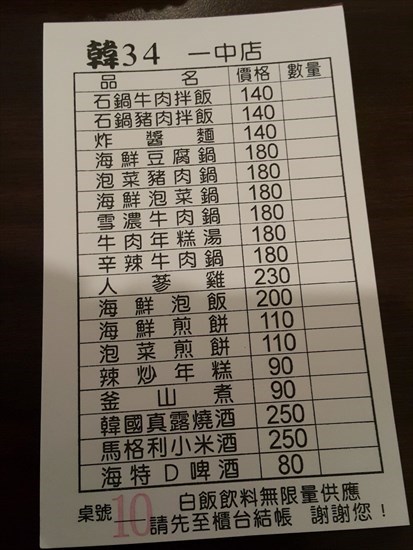 韓34 一中店
品名 價格 數量
石鍋牛肉拌飯 140
石鍋豬肉拌飯 140
炸醬麵 140
海鮮豆腐鍋 180
泡菜豬肉鍋 180
海鮮泡菜鍋 180
雪濃牛肉鍋 180
牛肉年糕湯 180
辛辣牛肉鍋 180
人蔘雞 230
海鮮泡飯 200
海鮮煎餅 110
泡菜煎餅 110
辣炒年糕 90
釜山煮 90
韓國真露燒酒 250
馬格利小米酒 250
海特D啤酒 80
白飯飲料無限量供應
桌號 10 請先至櫃台結帳 謝謝您！